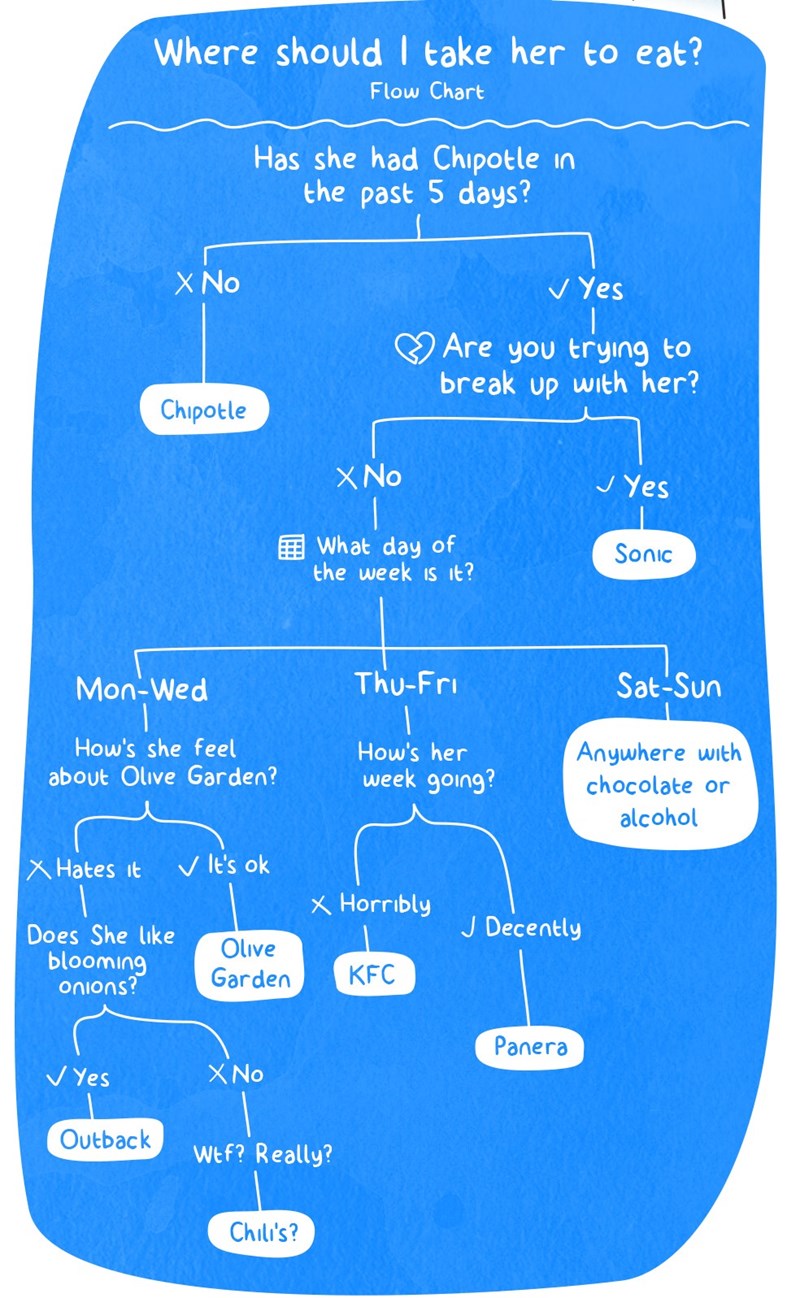 Where should I take her to eat?
Flow Chart
Has she had Chipotle in
the past 5 days?
No
Yes
Are you trying to
break up with her?
Chipotle
No
Yes
What day of
the week is it?
Sonic
Mon-Wed
Thu-Fri
Sat-Sun
How's she feel
about Olive Garden?
How's her
week going?
Anywhere with
chocolate or
alcohol
Hates it
It's ok
Horribly
Decently
Does She like
blooming
onions?
Olive
Garden
KFC
Panera
Yes
No
Outback
Wtf? Really?
Chili's?